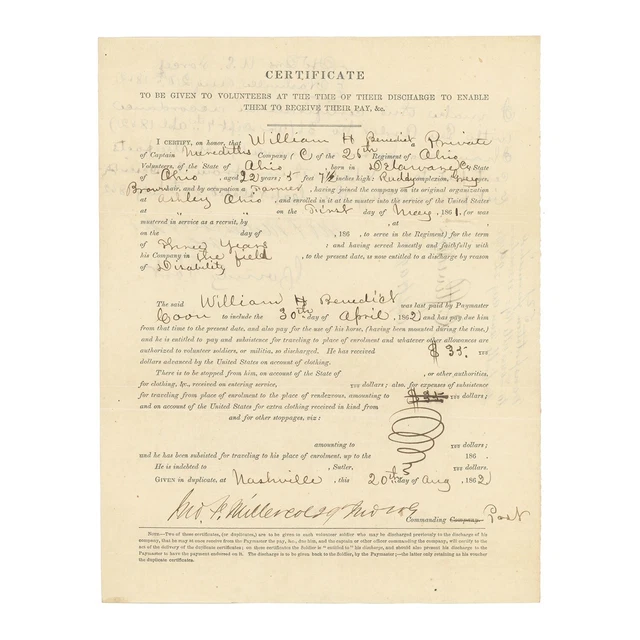 CERTIFICATE
TO BE GIVEN TO VOLUNTEERS AT THE TIME OF THEIR DISCHARGE TO ENABLE
THEM TO RECEIVE THEIR PAY, &c.
I CERTIFY, on honor, that William H Benedict a Private
of Captain Merediths Company (C) of the 26th Regiment of Ohio
Volunteers, of the State of Ohio, born in Delaware Co State
of Ohio, aged 22 years; 5 feet 7½ inches high; Ruddy complexion, Grey eyes,
Brown hair, and by occupation a Farmer, having joined the company on its original organization
at Ashley Ohio, and enrolled in it at the muster into the service of the United States
at " " on the First day of May, 1861. (or was
mustered in service as a recruit, by , at ,
on the day of 186 , to serve in the Regiment) for the term
of Three Years : and having served honestly and faithfully with
his Company in the field , to the present date, is now entitled to a discharge by reason
of Disability
The said William H Benedict was last paid by Paymaster
Coon to include the 30th day of April, 1862) and has pay due him
from that time to the present date, and also pay for the use of his horse, (having been mounted during the time,)
and he is entitled to pay and subsistence for traveling to place of enrolment and whatever other allowances are
authorized to volunteer soldiers, or militia, so discharged. He has received $35. 
dollars advanced by the United States on account of clothing.
There is to be stopped from him, on account of the State of , or other authorities,
for clothing, &c., received on entering service, dollars; also, for expenses of subsistence
for traveling from place of enrolment to the place of rendezvous, amounting to dollars;
and on account of the United States for extra clothing received in kind from
and for other stoppages, viz:
amounting to dollars;
and he has been subsisted for traveling to his place of enrolment, up to the 186 .
He is indebted to , Sutler, dollars.
GIVEN in duplicate, at Nashville , this 20th day of Aug, 1862)
Jno. F. Miller Col 29
Commanding Company. Post
NOTE.—Two of these certificates, (or duplicates,) are to be given to each volunteer soldier who may be discharged previously to the discharge of his
company, that he may at once receive from the Paymaster the pay, &c., due him, and the captain or other officer commanding the company, will certify to the
act of the delivery of the duplicate certificates; on these certificates the Soldier is "entitled to" his discharge, and should also present his discharge to the
Paymaster to have the payment endorsed on it. The discharge is to be given back to the Soldier, by the Paymaster;—the latter only retaining as his voucher
the duplicate certificates.